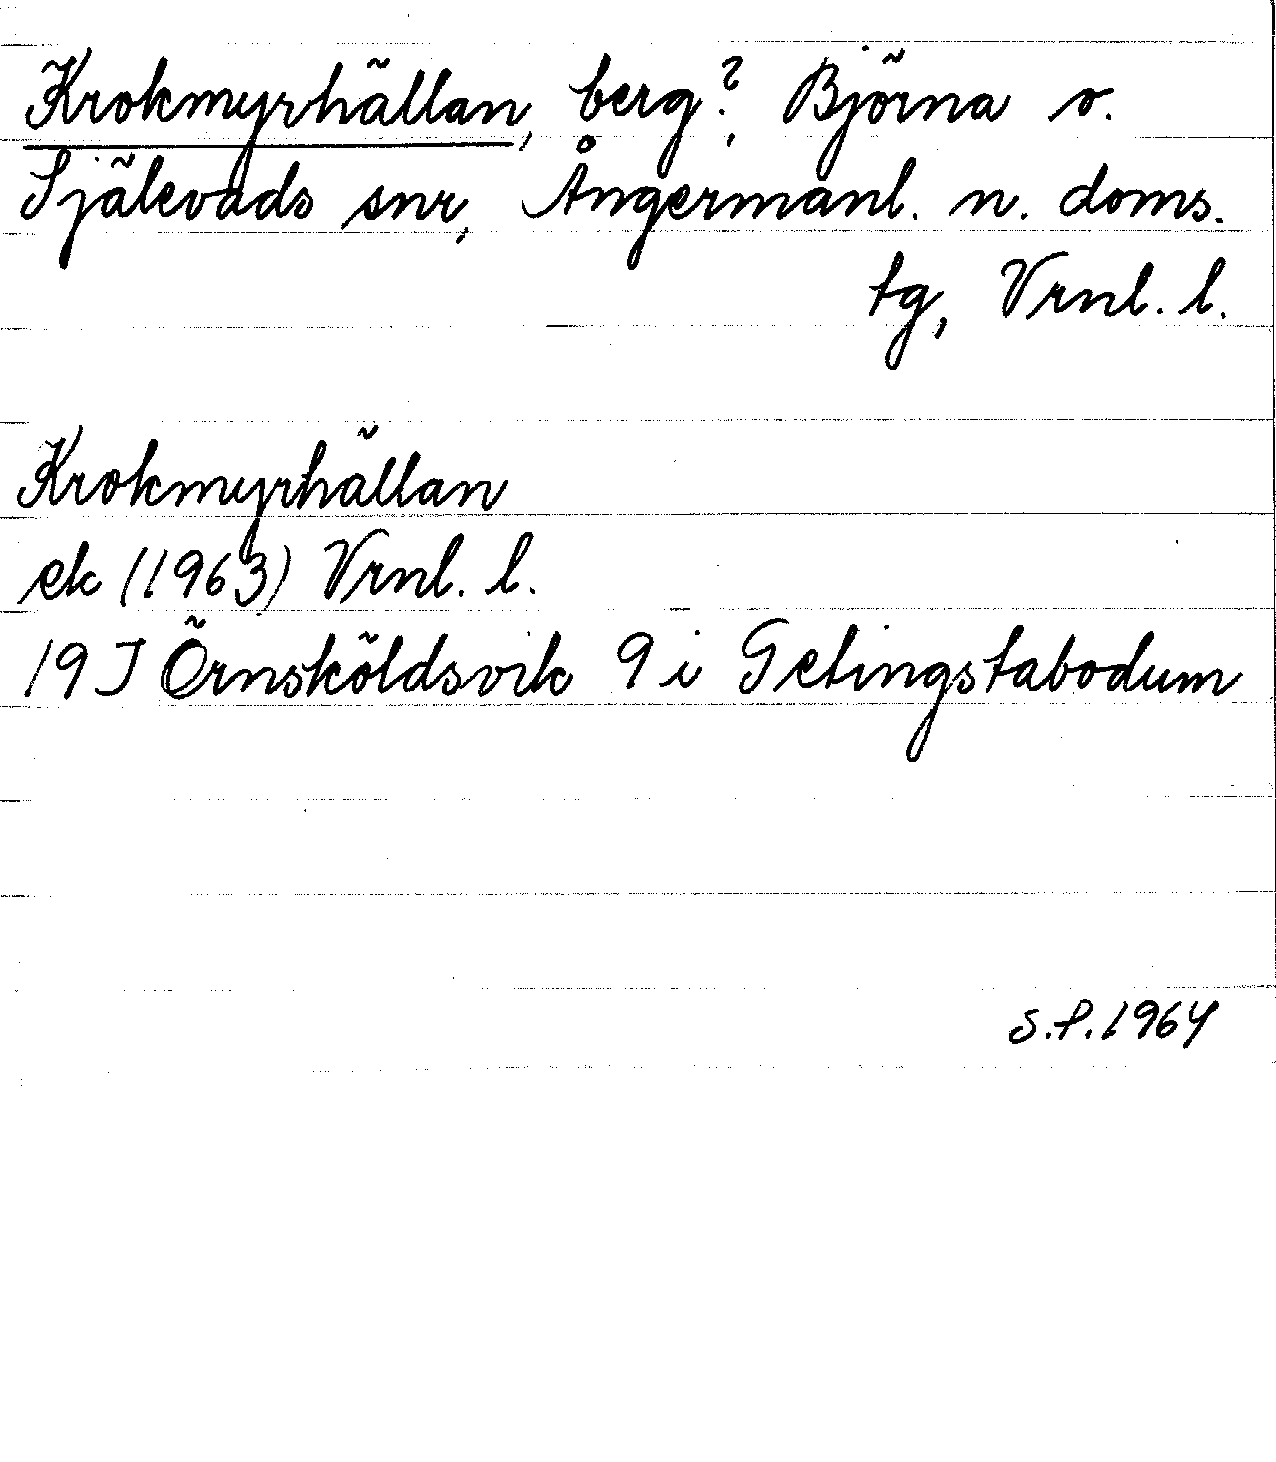 Krokmyrhällan, berg?, Björna o.
Själevads snr, Ångermanl. n. doms.
tg, Vrnl. l.
Krokmyrhällan
ek (1963) Vrnl. l.
19 J Örnsköldsvik 9 i Getingstabodum
S.P. 1964